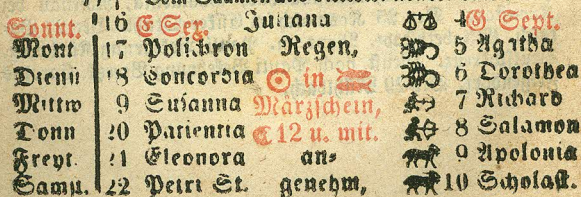 Sonnt. 16 E Sex. Juliana 4 G Sept.
Mont 17 Polichron Regen, 5 Agatha
Dienst 18 Concordia ☉ in ♓ 6 Dorothea
Mittw 9 Susanna Märzschein, 7 Richard
Donn 20 Patientia ☾ 12 u. mit. 8 Salamon
Freyt. 21 Eleonora an- 9 Apolonia
Samst. 22 Petri St. genehm, 10 Scholast.